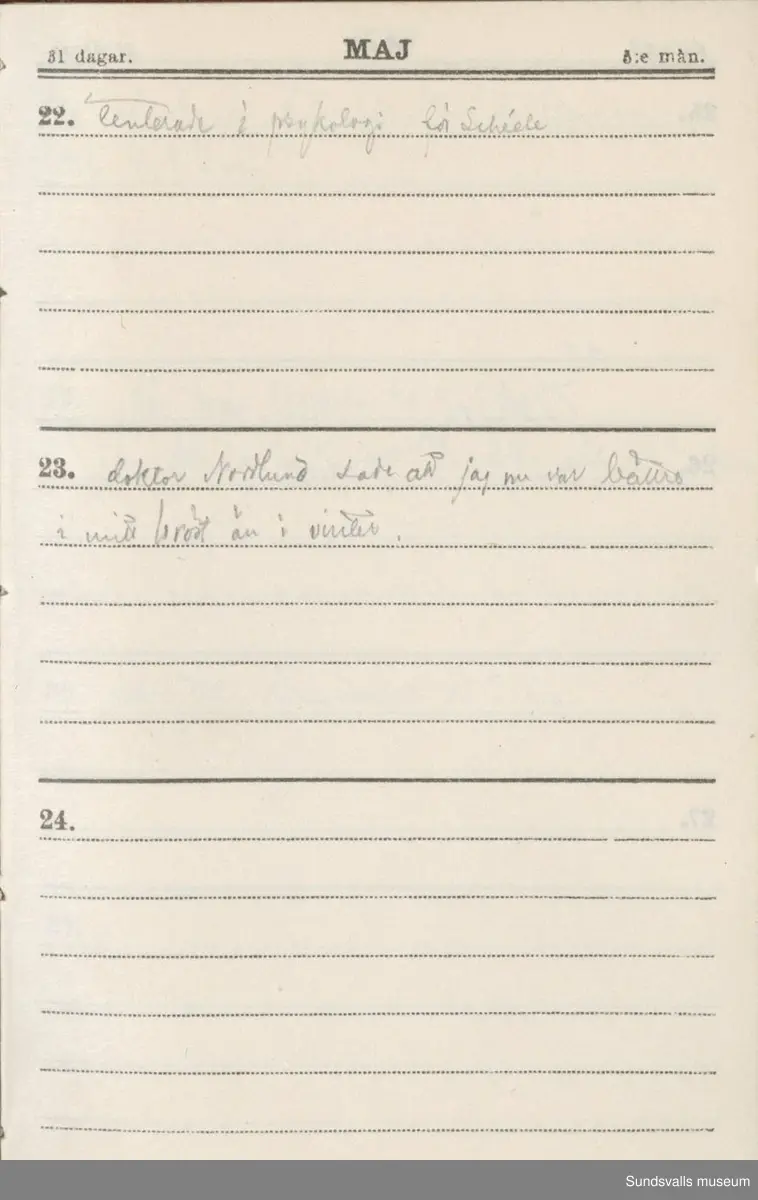 31 dagar. MAJ 5:e mån.
22. Tenterade i psykologi för Schéele
23. doktor Nordlund sade att jag nu var bättre
i mitt bröst än i vinter.
24.
Sundsvalls museum